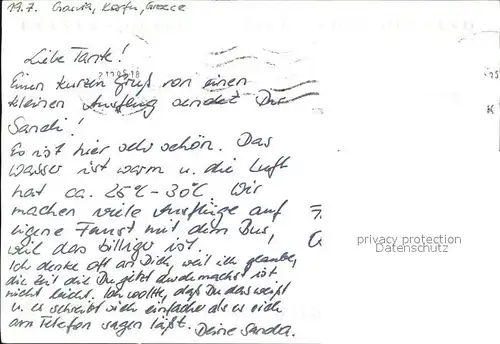 19.7. Gouvia, Korfu, Greece
Liebe Tante!
Einen kurzen Gruß von einem
kleinen Ausflug sendet Dir
Sandi!
Es ist hier sehr schön. Das
Wasser ist warm u. die Luft
hat ca. 25°C - 30°C. Wir
machen viele Ausflüge auf
eigene Faust mit dem Bus,
weil das billiger ist.
Ich denke oft an Dich, weil ich glaube,
die Zeit die Du jetzt durchmachst ist
nicht leicht. Ich wollte, daß Du das weißt
u. es schreibt sich einfacher als es sich
am Telefon sagen läßt. Deine Sandra.
privacy protection
Datenschutz